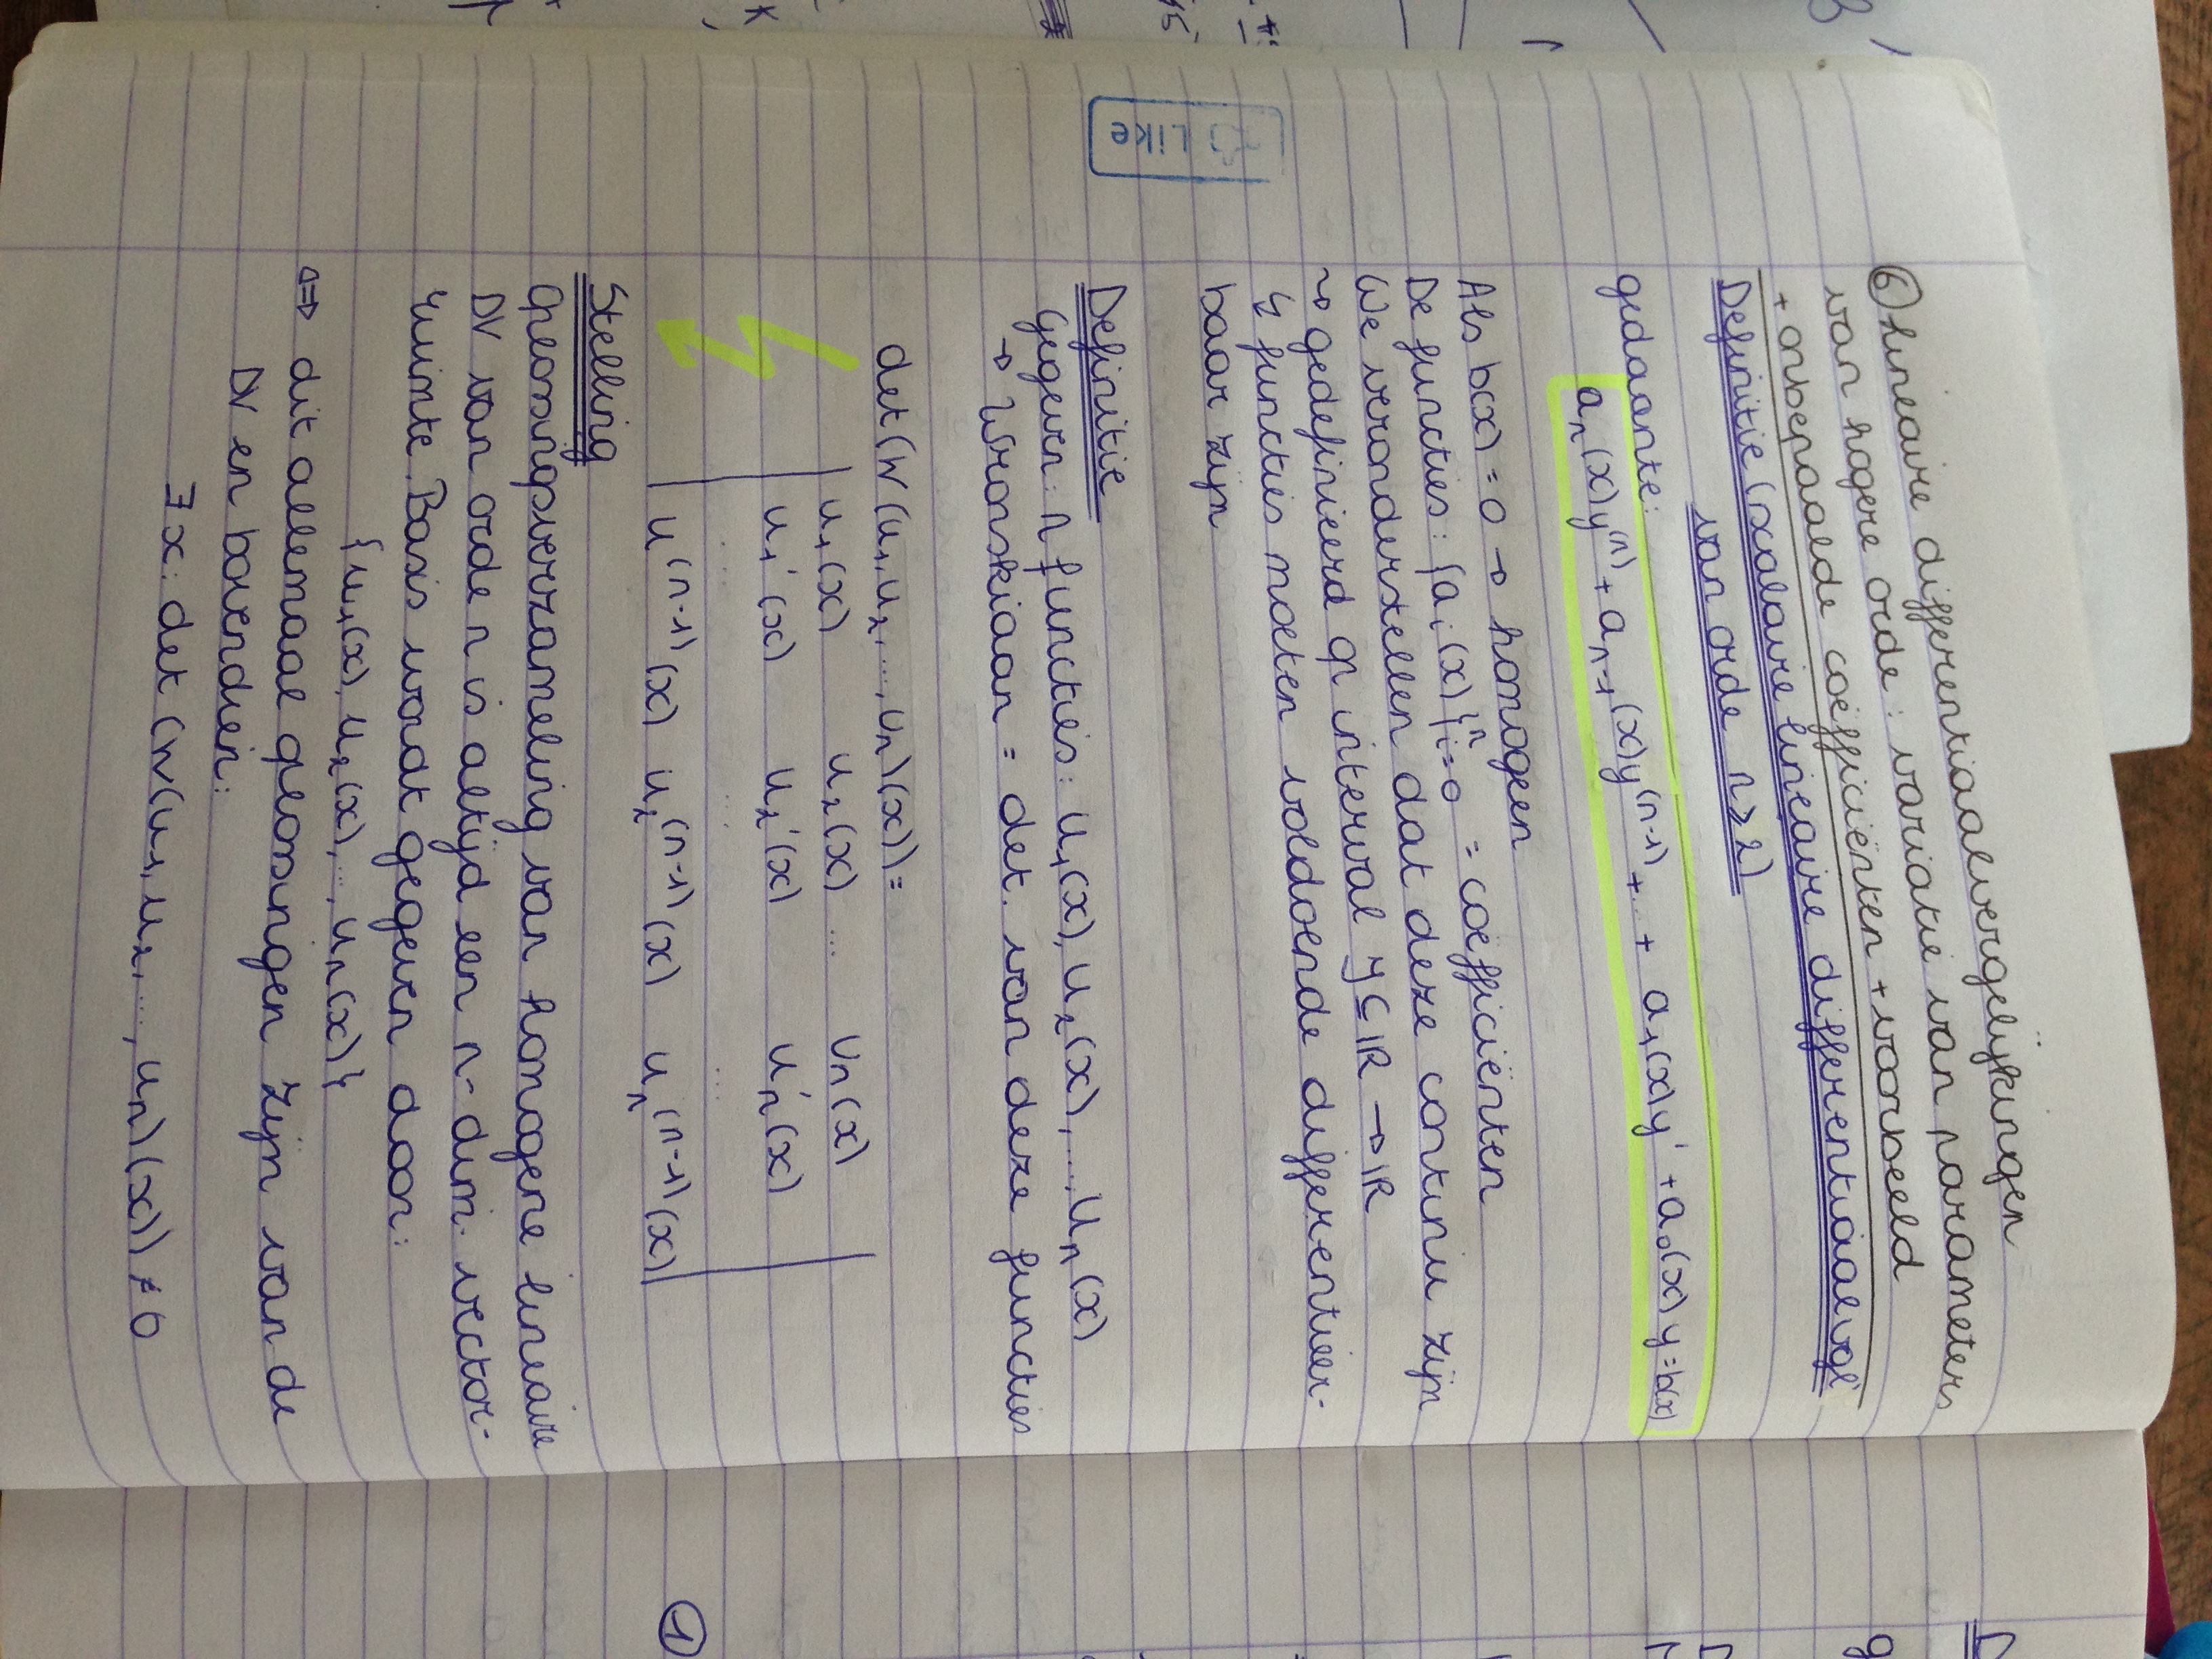 ⑥ Lineaire differentiaalvergelijkingen
van hogere orde: variatie van parameters
+ onbepaalde coëfficiënten + voorbeeld
Definitie (scalaire lineaire differentiaalvgl
van orde n ⩾ 2)
gedaante:
aₙ(x)y⁽ⁿ⁾ + aₙ₋₁(x)y⁽ⁿ⁻¹⁾ + ... + a₁(x)y' + a₀(x)y = b(x)
Als b(x) = 0 → homogeen
De functies: {aᵢ(x)}ⁿᵢ₌₀ = coëfficiënten
We veronderstellen dat deze continu zijn
⇝ gedefinieerd op interval J ⊆ ℝ → ℝ
↳ functies moeten voldoende differentieer-
baar zijn
Like
Definitie
Gegeven: n functies: u₁(x), u₂(x), ..., uₙ(x)
→ Wronskiaan = det. van deze functies
det(W(u₁, u₂, ..., uₙ)(x)) =
| u₁(x) u₂(x) ... uₙ(x) |
| u₁'(x) u₂'(x) uₙ'(x) |
| ... ... ... |
| u⁽ⁿ⁻¹⁾(x) u₂⁽ⁿ⁻¹⁾(x) uₙ⁽ⁿ⁻¹⁾(x) |
Stelling
Oplossingsverzameling van homogene lineaire
DV van orde n is altijd een n-dim. vector-
ruimte. Basis wordt gegeven door:
{u₁(x), u₂(x), ..., uₙ(x)}
⇔ dit allemaal oplossingen zijn van de
DV en bovendien:
∃x: det (W(u₁, u₂, ..., uₙ)(x)) ≠ 0
①